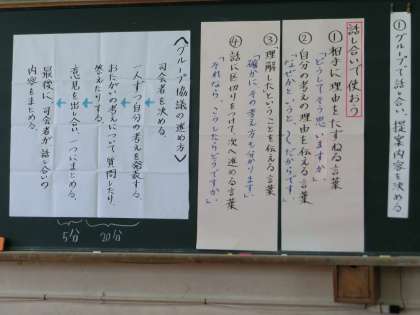 ①グループで話し合い、提案内容を決める
話し合いで使おう
①相手に理由をたずねる言葉
「どうしてそう思いますか。」
②自分の考えの理由を伝える言葉
「なぜかというと、〜だからです。」
③理解したということを伝える言葉
「確かにその考え方も分かります。」
④話に区切りをつけて、次へ進める言葉
「それなら、こうしたらどうですか。」
〈グループ協議の進め方〉
司会者を決める。
一人ずつ自分の考えを発表する。
おたがいの考えについて質問したり、
答えたりする。
意見を出し合い、一つにまとめる。
最後に、司会者が話し合いの
内容をまとめる。
20分
5分